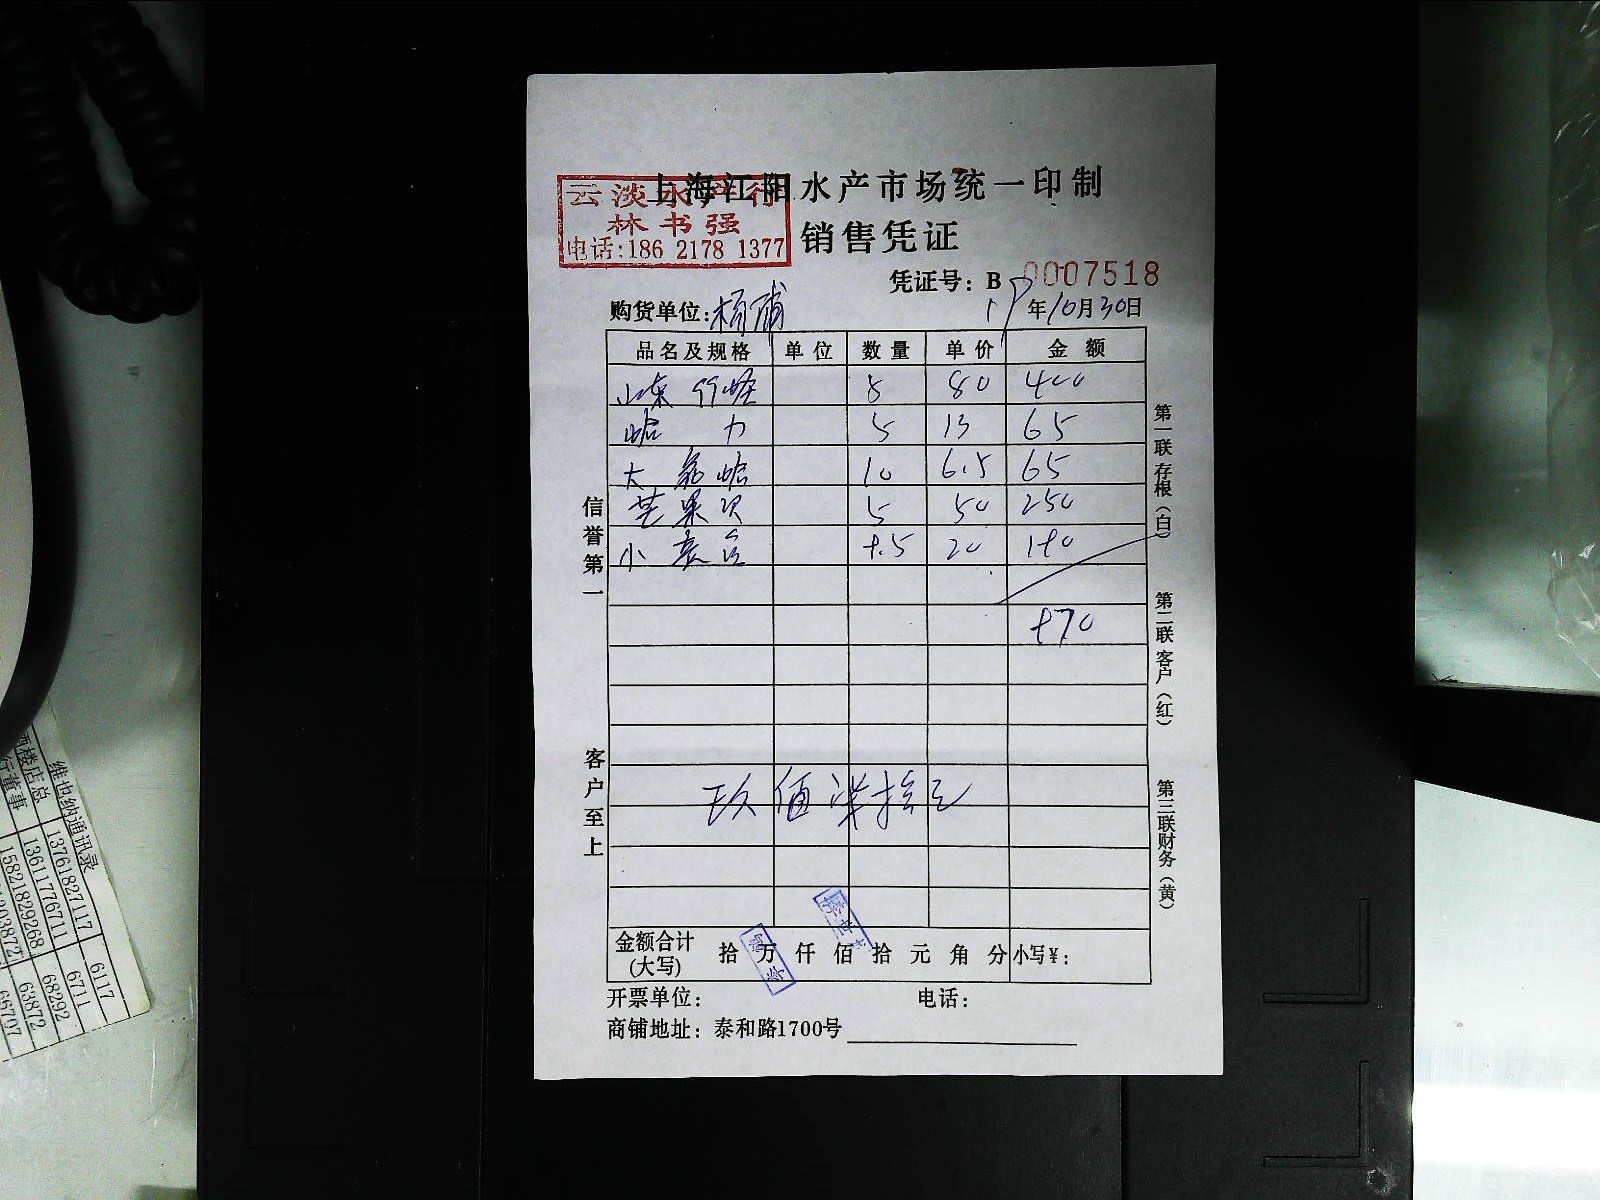 上海江阳水产市场统一印制
云淡水产行
林书强
电话:186 2178 1377
销售凭证
凭证号: B 0007518
购货单位:杨浦
19年10月30日
品名及规格 单位 数量 单价 金额
山东竹蛏 5 80 400
蛤力 5 13 65
大 蛤 10 6.5 65
芒果贝 5 50 250
小 9.5 20 190
970
玖佰柒拾元
金额合计(大写) 拾万仟佰拾元角分 小写¥:
开票单位: 电话:
商铺地址: 泰和路1700号
信誉第一
客户至上
第一联存根(白)
第二联客户(红)
第三联财务(黄)
维也纳通讯录
酒楼店总 13761827117 6117
行董事 13611776711 6711
15821829268 68292
63872